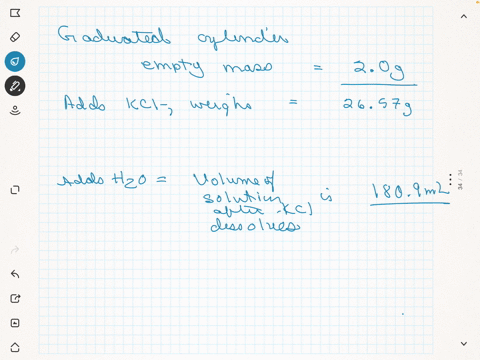 Graduated cylinder
empty mass = 2.0g
Adds KCl, weighs = 26.57g
Adds H2O = Volume of
solution is 180.9mL
after KCl
dissolves